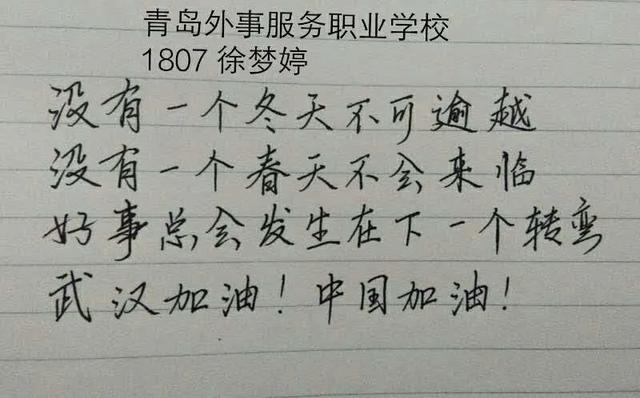 青岛外事服务职业学校
1807 徐梦婷
没有一个冬天不可逾越
没有一个春天不会来临
好事总会发生在下一个转弯
武汉加油！中国加油！